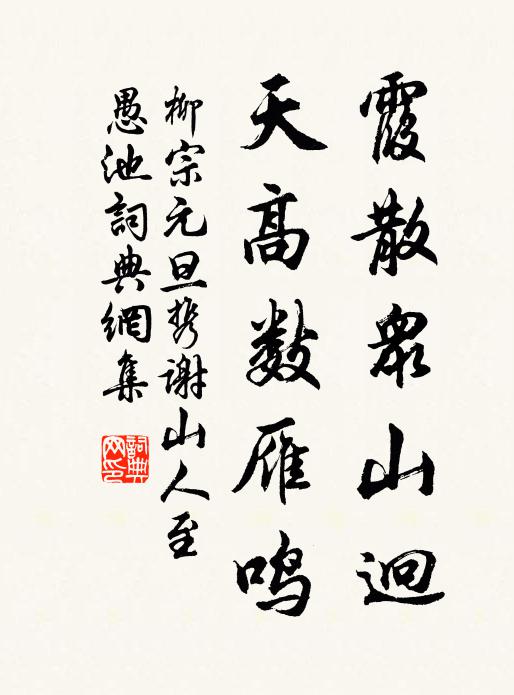 霞散衆山迥
天高数雁鸣
柳宗元旦携謝山人至
愚池詞典網集
詞典网印